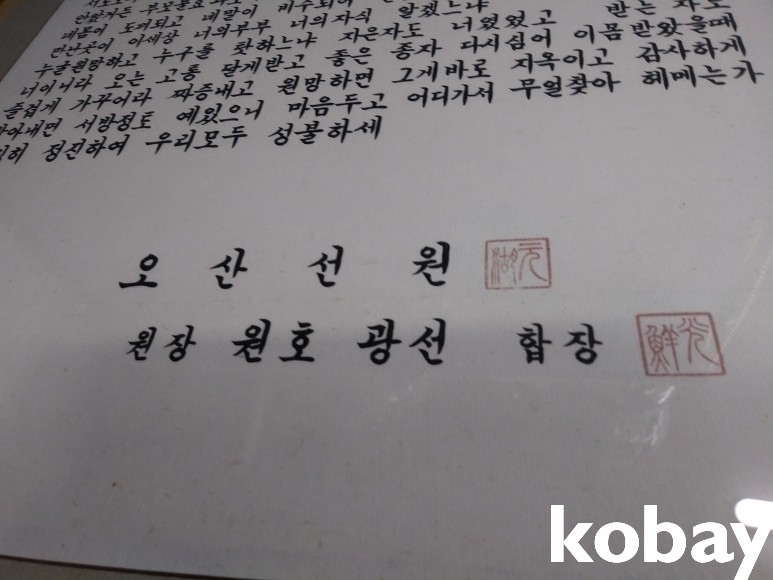 내몸이 도비되고 네말이 비수되어
만난곳이 이세상 너의부부 너의자식 알겠느냐 받는 자도
누굴원망하고 누구를 탓하느냐 지은자도 너였었고
너이니라 오는 고통 달게받고 좋은 종자 다시심어 이몸 받았을때
즐겁게 가꾸어라 짜증내고 원망하면 그게바로 지옥이고 감사하게
서방정토 예있으니 마음두고 어디가서 무얼찾아 헤메는가
정진하여 우리모두 성불하세
오 산 선 원 元湖
원장 원호 광선 합장 光鮮
kobay